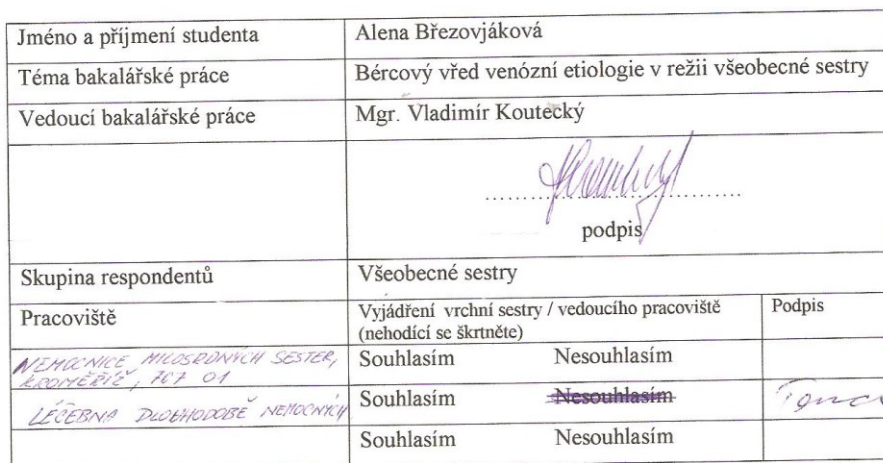 Jméno a příjmení studenta Alena Březovjáková
Téma bakalářské práce Bércový vřed venózní etiologie v režii všeobecné sestry
Vedoucí bakalářské práce Mgr. Vladimír Koutecký
podpis
Skupina respondentů Všeobecné sestry
Pracoviště Vyjádření vrchní sestry / vedoucího pracoviště Podpis
(nehodící se škrtněte)
NEMOCNICE MILOSRDNÝCH SESTER, Souhlasím Nesouhlasím
KROMĚŘÍŽ, 767 01
LÉČEBNA DLOUHODOBĚ NEMOCNÝCH Souhlasím Nesouhlasím
Souhlasím Nesouhlasím